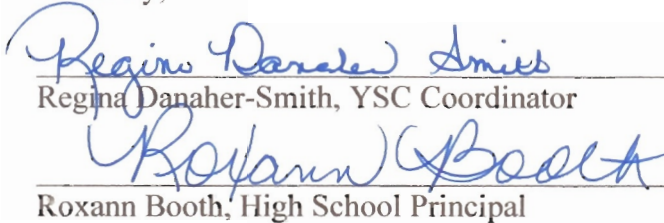 Regina Danaher Smith
Regina Danaher-Smith, YSC Coordinator
Roxann Booth
Roxann Booth, High School Principal